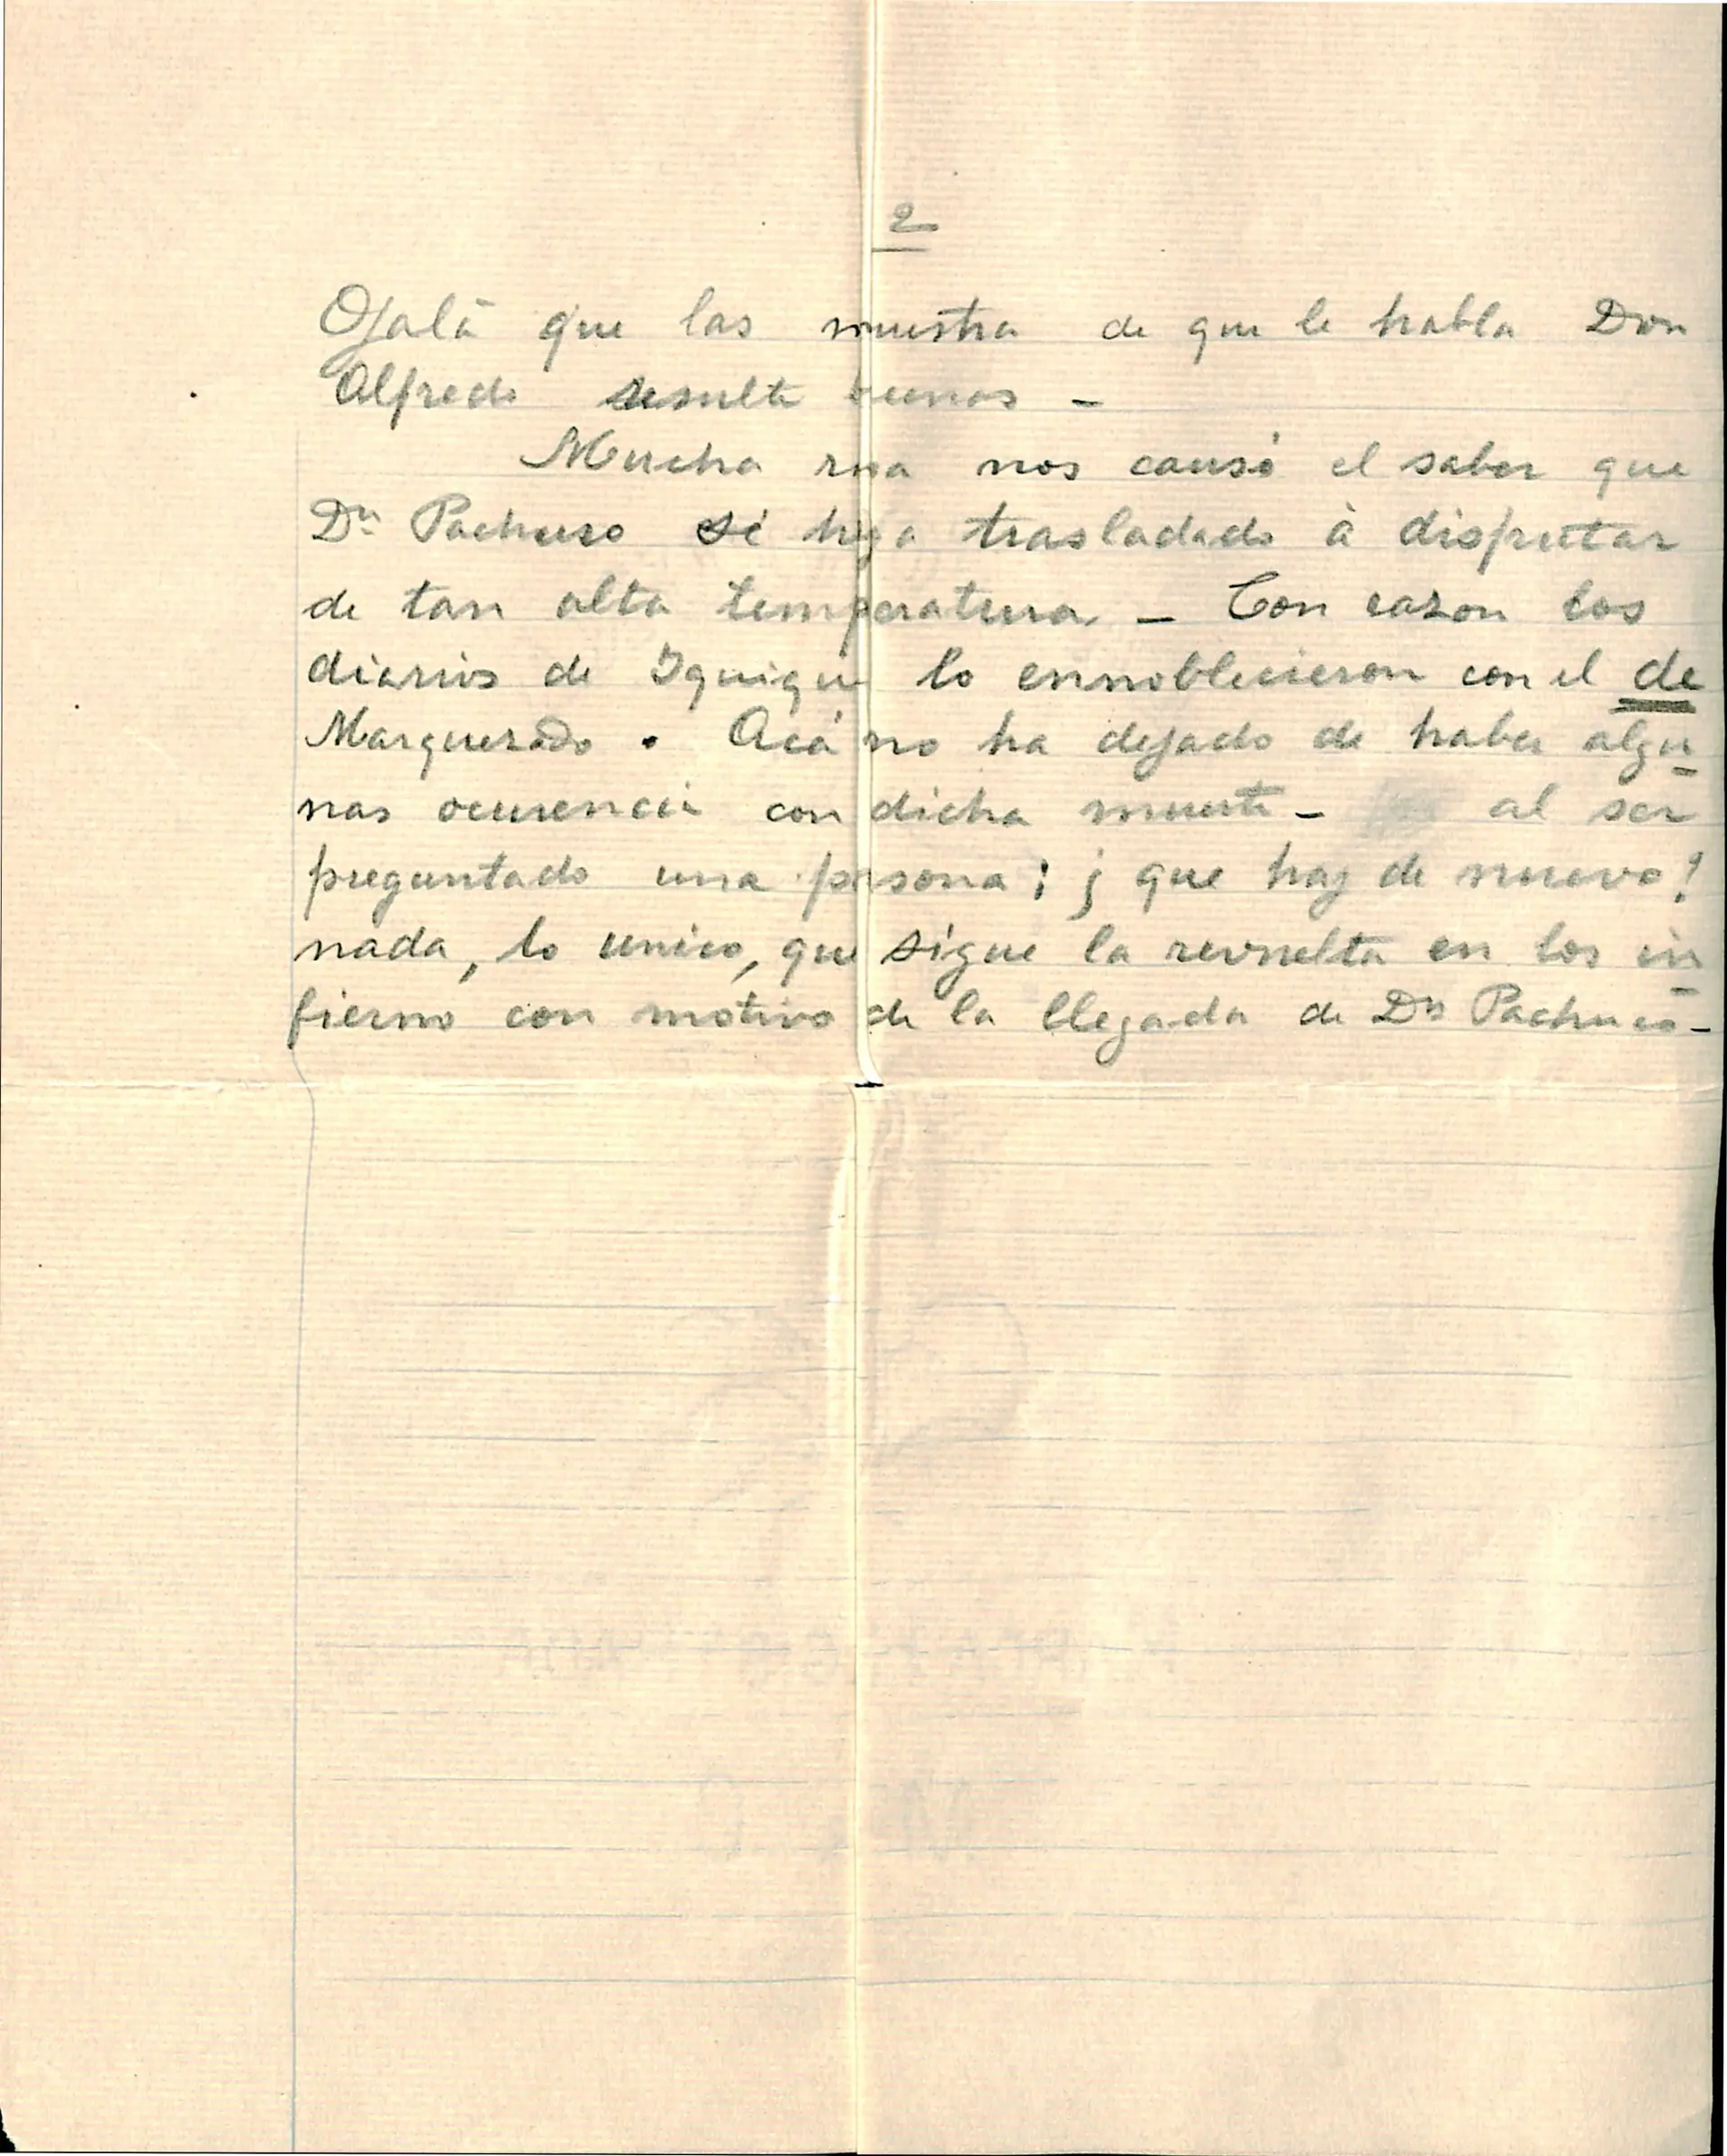 2
Ojalá que las muestra de que le habla Don
Alfredo resulte buenas -
Mucha risa nos causó el saber que
Dn Pachuco se haya trasladado à disfrutar
de tan alta temperatura - Con razon los
diarios de Iquique lo ennoblecieron con el de
Marquezado. Acá no ha dejado de haber algu
nas ocurencia con dicha muerte - al ser
preguntado una persona; ¿ que hay de nuevo?
nada, lo unico, que sigue la revuelta en los in
fierno con motivo de la llegada de Dn Pachuco -